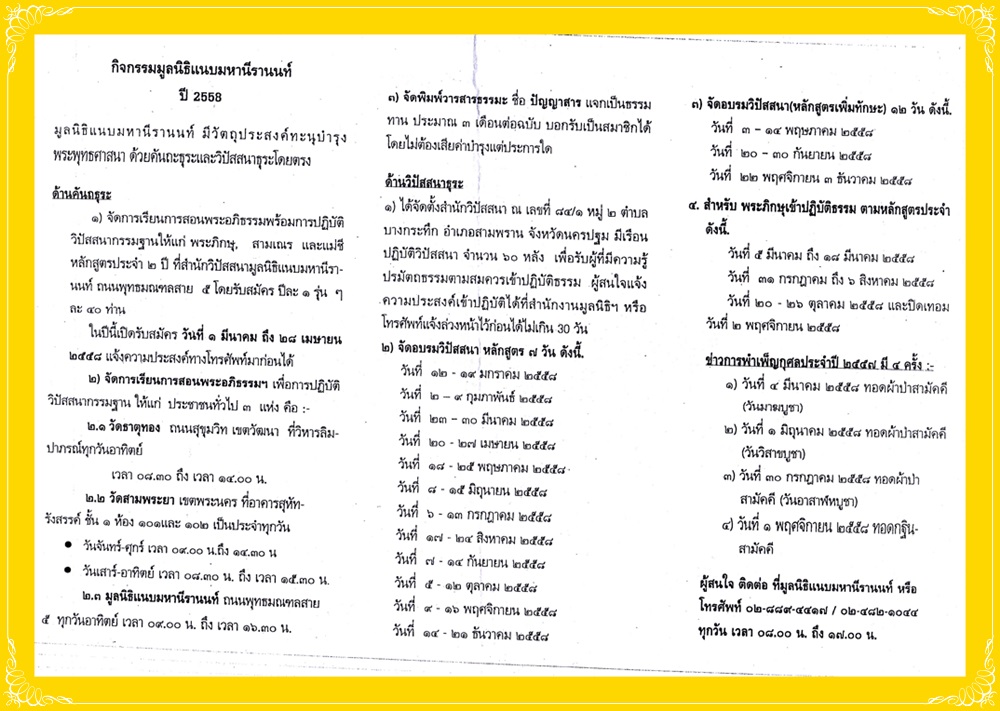 กิจกรรมมูลนิธิแนบมหานีรานนท์
ปี 2558
มูลนิธิแนบมหานีรานนท์ มีวัตถุประสงค์ทะนุบำรุง
พระพุทธศาสนา ด้วยคันถะธุระและวิปัสสนาธุระโดยตรง
ด้านคันถธุระ
๑) จัดการเรียนการสอนพระอภิธรรมพร้อมการปฏิบัติ
วิปัสสนากรรมฐานให้แก่ พระภิกษุ, สามเณร และแม่ชี
หลักสูตรประจำ ๒ ปี ที่สำนักวิปัสสนามูลนิธิแนบมหานีรา-
นนท์ ถนนพุทธมณฑลสาย ๕ โดยรับสมัคร ปีละ ๑ รุ่น ๆ
ละ ๔๐ ท่าน
ในปีนี้เปิดรับสมัคร วันที่ ๑ มีนาคม ถึง ๒๘ เมษายน
๒๕๕๘ แจ้งความประสงค์ทางโทรศัพท์มาก่อนได้
๒) จัดการเรียนการสอนพระอภิธรรมฯ เพื่อการปฏิบัติ
วิปัสสนากรรมฐาน ให้แก่ ประชาชนทั่วไป ๓ แห่ง คือ :-
๒.๑ วัดธาตุทอง ถนนสุขุมวิท เขตวัฒนา ที่วิหารลิม-
ปาภรณ์ทุกวันอาทิตย์
เวลา ๐๘.๓๐ ถึง เวลา ๑๔.๐๐ น.
๒.๒ วัดสามพระยา เขตพระนคร ที่อาคารสุหัท-
รังสรรค์ ชั้น ๑ ห้อง ๑๐๑และ ๑๐๒ เป็นประจำทุกวัน
• วันจันทร์-ศุกร์ เวลา ๐๙.๐๐ น.ถึง ๑๔.๓๐ น
• วันเสาร์-อาทิตย์ เวลา ๐๘.๓๐ น. ถึง เวลา ๑๕.๓๐ น.
๒.๓ มูลนิธิแนบมหานีรานนท์ ถนนพุทธมณฑลสาย
๕ ทุกวันอาทิตย์ เวลา ๐๙.๐๐ น. ถึง เวลา ๑๖.๓๐ น.
๓) จัดพิมพ์วารสารธรรมะ ชื่อ ปัญญาสาร แจกเป็นธรรม
ทาน ประมาณ ๓ เดือนต่อฉบับ บอกรับเป็นสมาชิกได้
โดยไม่ต้องเสียค่าบำรุงแต่ประการใด
ด้านวิปัสสนาธุระ
๑) ได้จัดตั้งสำนักวิปัสสนา ณ เลขที่ ๘๔/๑ หมู่ ๒ ตำบล
บางกระทึก อำเภอสามพราน จังหวัดนครปฐม มีเรือน
ปฏิบัติวิปัสสนา จำนวน ๖๐ หลัง เพื่อรับผู้ที่มีความรู้
ปรมัตถธรรมตามสมควรเข้าปฏิบัติธรรม ผู้สนใจแจ้ง
ความประสงค์เข้าปฏิบัติได้ที่สำนักงานมูลนิธิฯ หรือ
โทรศัพท์แจ้งล่วงหน้าไว้ก่อนได้ไม่เกิน 30 วัน
๒) จัดอบรมวิปัสสนา หลักสูตร ๗ วัน ดังนี้.
วันที่ ๑๒ - ๑๙ มกราคม ๒๕๕๘
วันที่ ๒ – ๙ กุมภาพันธ์ ๒๕๕๘
วันที่ ๒๓ – ๓๐ มีนาคม ๒๕๕๘
วันที่ ๒๐ - ๒๗ เมษายน ๒๕๕๘
วันที่ ๑๘ - ๒๕ พฤษภาคม ๒๕๕๘
วันที่ ๘ - ๑๕ มิถุนายน ๒๕๕๘
วันที่ ๖ - ๑๓ กรกฎาคม ๒๕๕๘
วันที่ ๑๗ - ๒๔ สิงหาคม ๒๕๕๘
วันที่ ๗ - ๑๔ กันยายน ๒๕๕๘
วันที่ ๕ - ๑๒ ตุลาคม ๒๕๕๘
วันที่ ๙ - ๑๖ พฤศจิกายน ๒๕๕๘
วันที่ ๑๔ - ๒๑ ธันวาคม ๒๕๕๘
๓) จัดอบรมวิปัสสนา(หลักสูตรเพิ่มทักษะ) ๑๒ วัน ดังนี้.
วันที่ ๓ – ๑๔ พฤษภาคม ๒๕๕๘
วันที่ ๒๐ – ๓๐ กันยายน ๒๕๕๘
วันที่ ๒๒ พฤศจิกายน ๓ ธันวาคม ๒๕๕๘
๔. สำหรับ พระภิกษุเข้าปฏิบัติธรรม ตามหลักสูตรประจำ
ดังนี้.
วันที่ ๕ มีนาคม ถึง ๑๘ มีนาคม ๒๕๕๘
วันที่ ๓๑ กรกฎาคม ถึง ๖ สิงหาคม ๒๕๕๘
วันที่ ๒๐ - ๒๖ ตุลาคม ๒๕๕๘ และปิดเทอม
วันที่ ๒ พฤศจิกายน ๒๕๕๘
ข่าวการพำเพ็ญกุศลประจำปี ๒๕๕๗ มี ๔ ครั้ง :-
๑) วันที่ ๔ มีนาคม ๒๕๕๘ ทอดผ้าป่าสามัคคี
(วันมาฆบูชา)
๒) วันที่ ๑ มิถุนายน ๒๕๕๘ ทอดผ้าป่าสามัคคี
(วันวิสาขบูชา)
๓) วันที่ ๓๐ กรกฎาคม ๒๕๕๘ ทอดผ้าป่า
สามัคคี (วันอาสาฬหบูชา)
๔) วันที่ ๑ พฤศจิกายน ๒๕๕๘ ทอดกฐิน-
สามัคคี
ผู้สนใจ ติดต่อ ที่มูลนิธิแนบมหานีรานนท์ หรือ
โทรศัพท์ ๐๒-๘๘๙-๔๔๑๗ / ๐๒-๔๘๒-๑๐๔๔
ทุกวัน เวลา ๐๘.๐๐ น. ถึง ๑๗.๐๐ น.